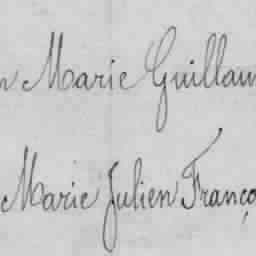 n Marie Guillau
Marie Julien Franço